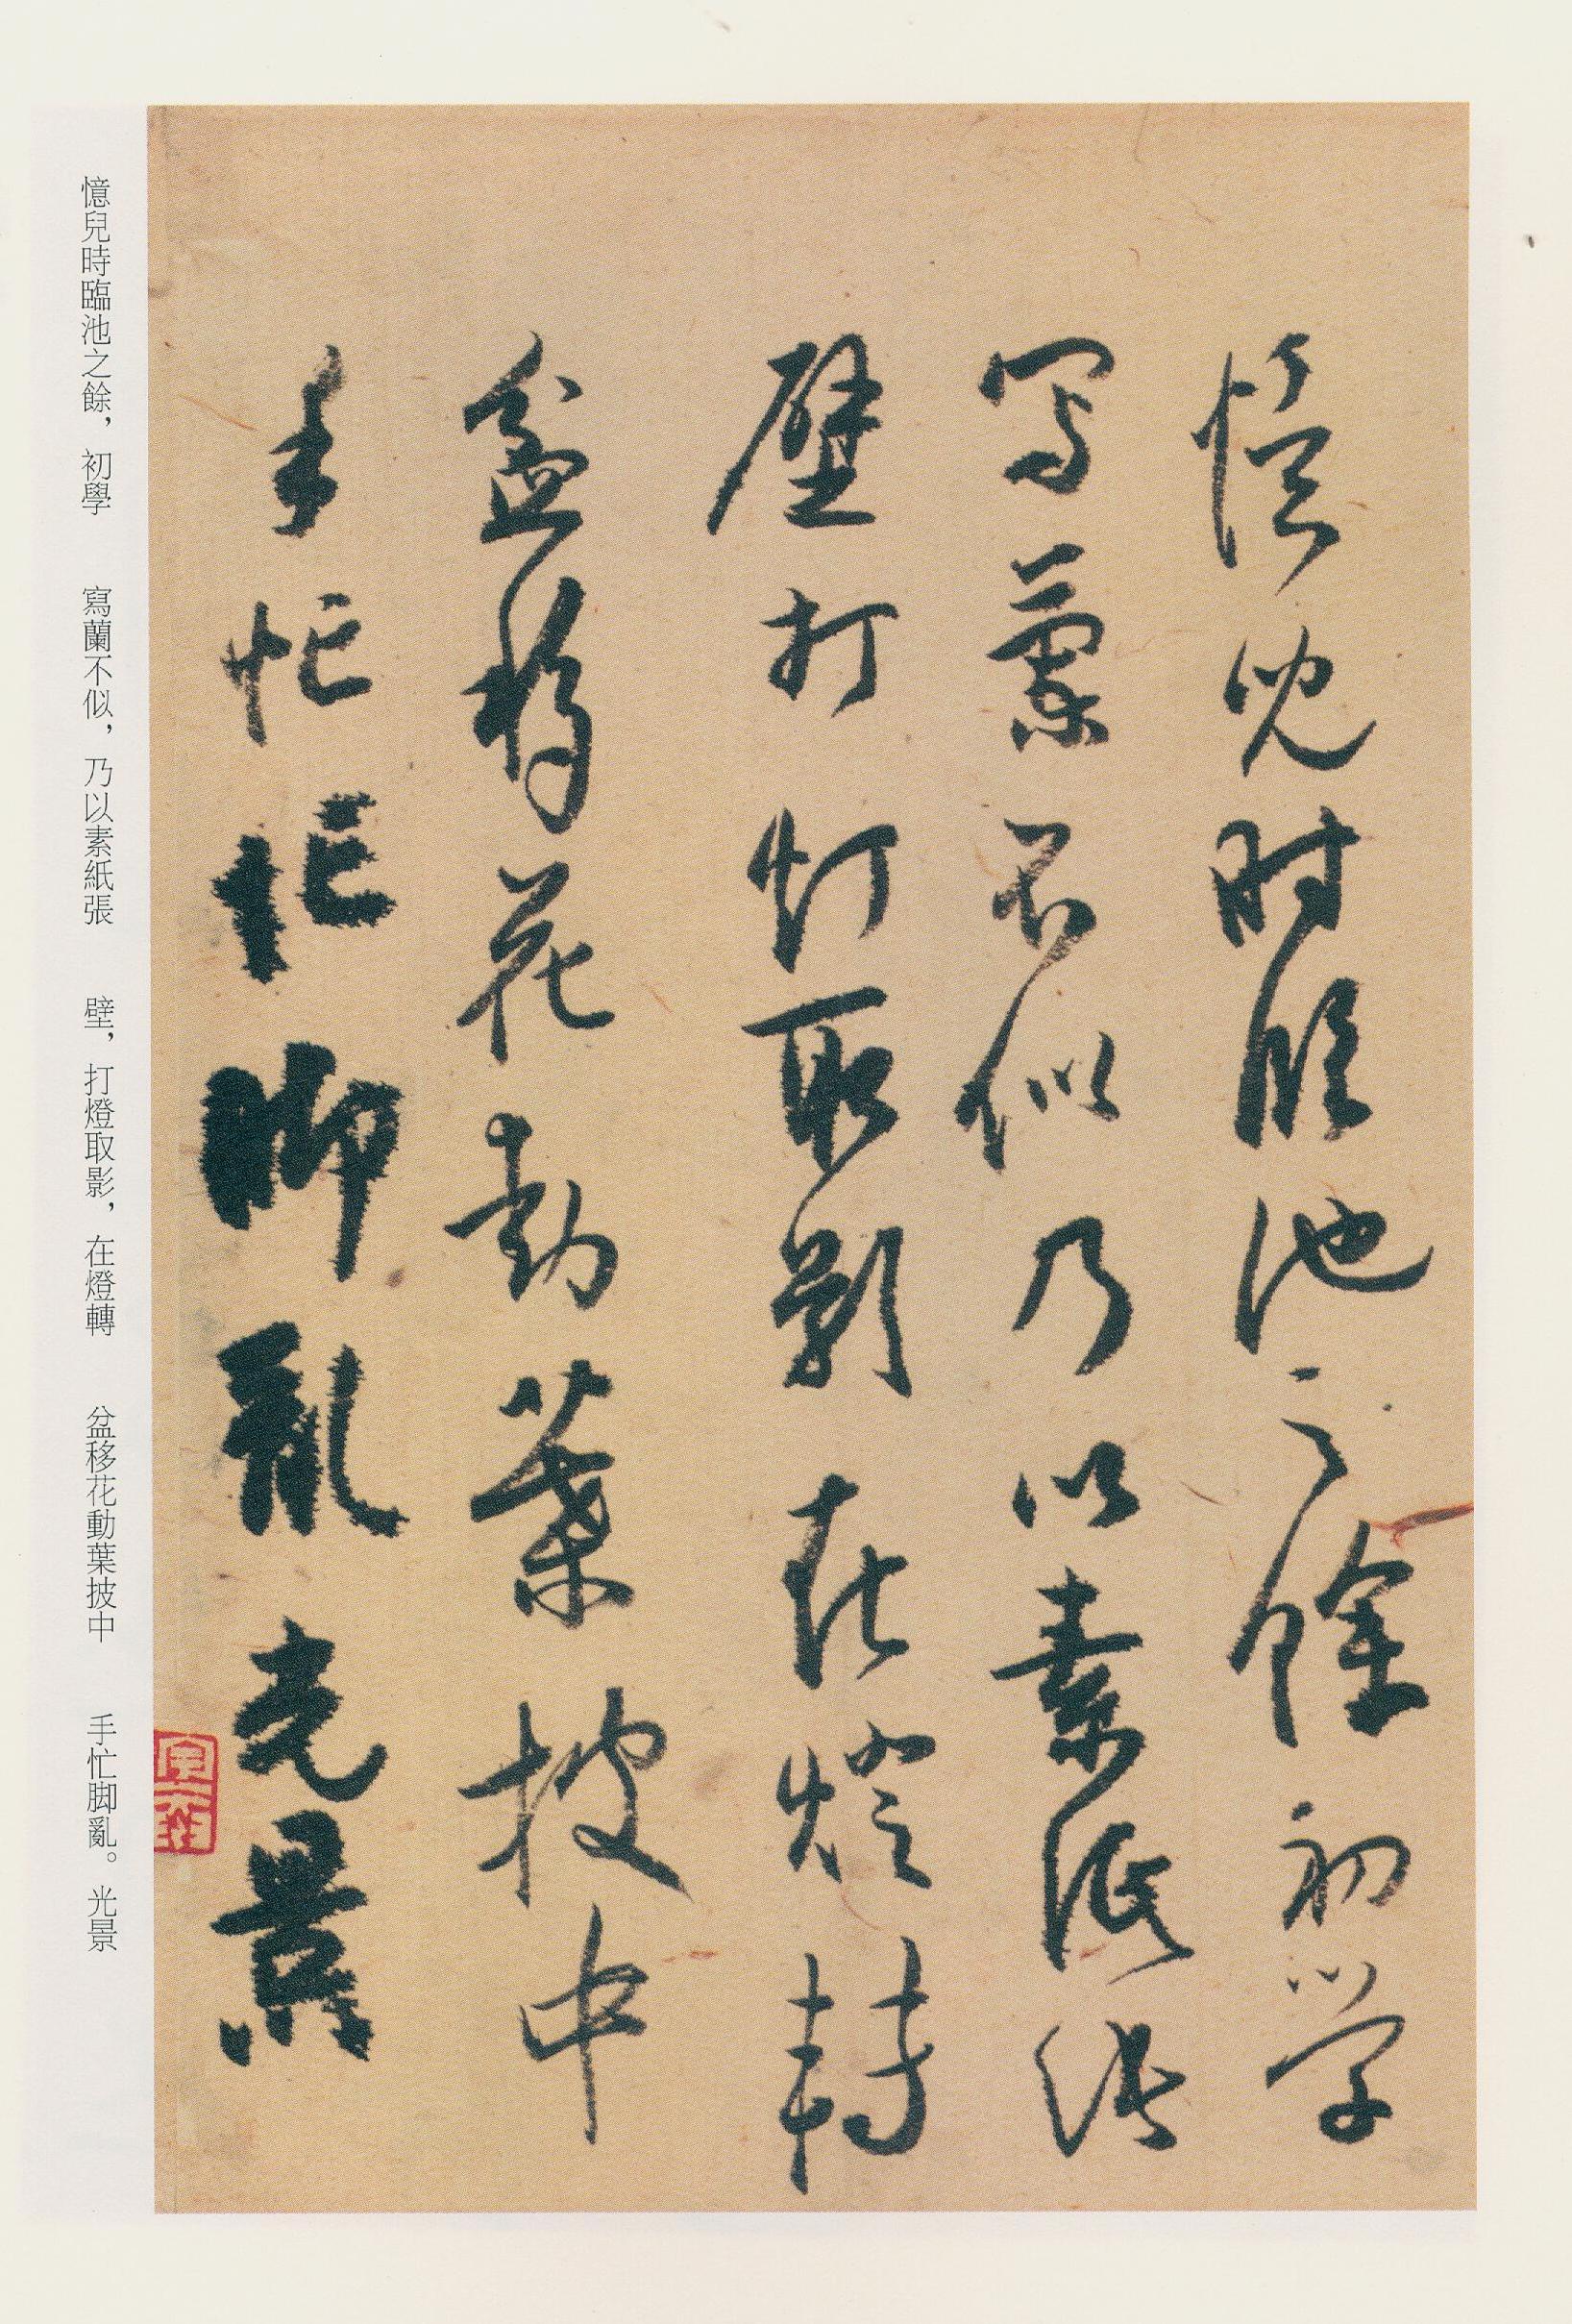 憶兒時臨池之餘初學
寫蘭不似乃以素紙張
壁打灯取影在燈轉
盆移花動葉披中
手忙忙脚亂光景
憶兒時臨池之餘，初學　寫蘭不似，乃以素紙張　壁，打燈取影，在燈轉　盆移花動葉披中　手忙脚亂。光景